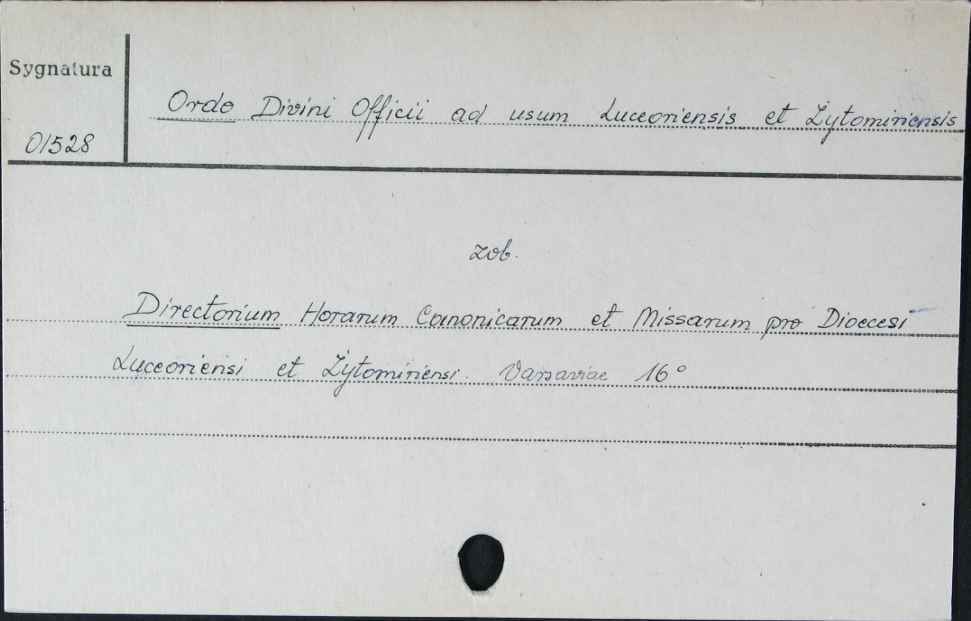 Sygnatura
01528
Ordo Divini Officii ad usum Luceoriensis et Żytomiriensis
zob.
Directorium Horarum Canonicarum et Missarum pro Dioecesi
Luceoriensi et Żytomiriensi. Varsaviae 16°